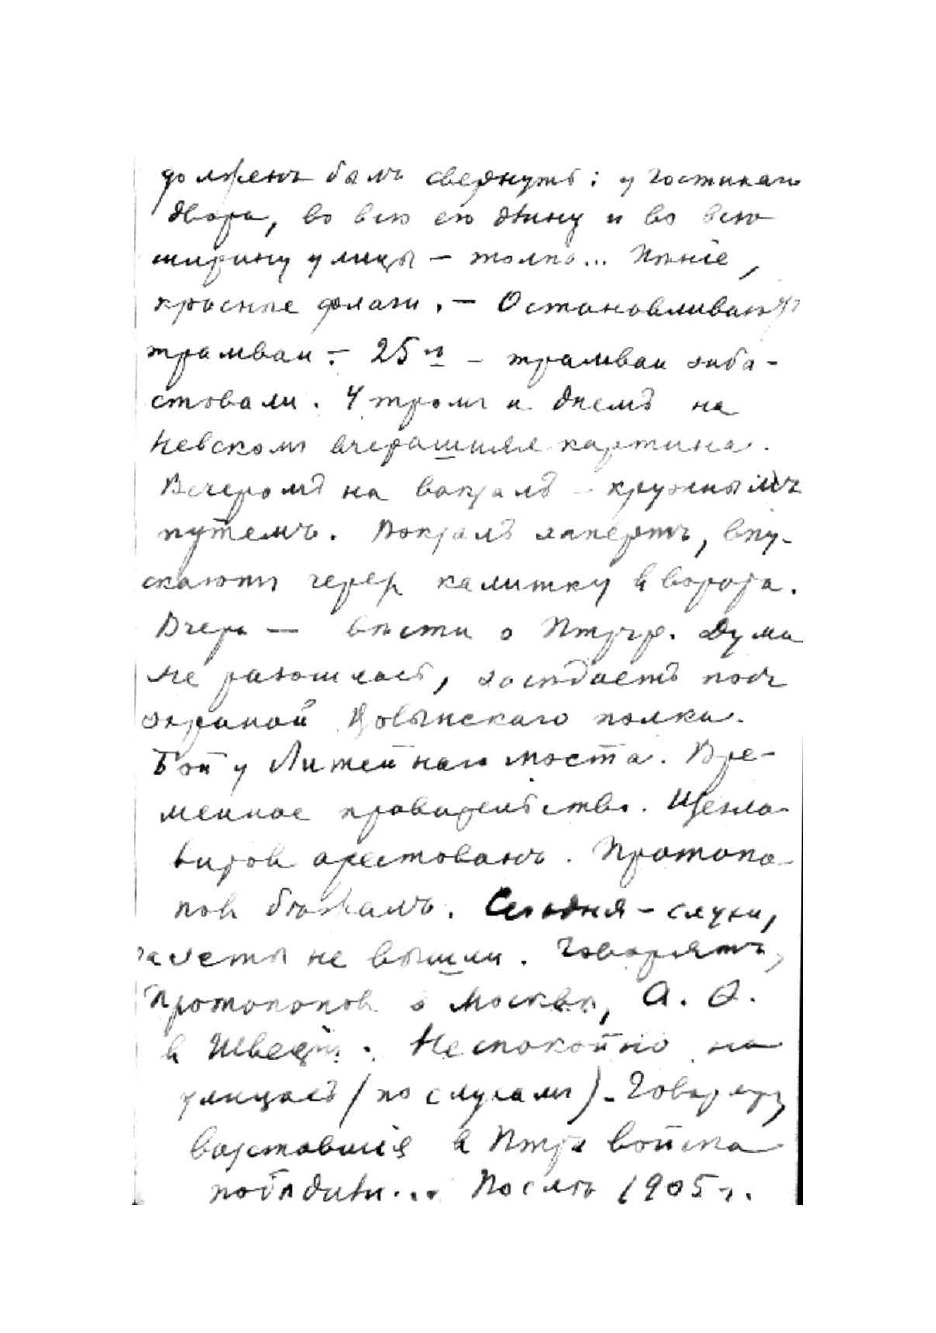 долженъ былъ свернуть: у Гостинаго
двора, во всю его длину и во всю
ширину улицы – толпа... Пѣніе,
красные флаги. – Останавливаютъ
трамваи. – 25го – трамваи заба-
стовали. Утромъ и днемъ на
Невскомъ вчерашняя картина.
Вечеромъ на вокзалъ – кружнымъ
путемъ. Вокзалъ запертъ, впу-
скаютъ черезъ калитку в ворота.
Вчера – вѣсти о Птргр. Дума
не разошлась, засѣдаетъ подъ
охраной Волынскаго полка.
Бой у Литейнаго моста. Вре-
менное правительство. Щегло-
витов арестованъ. Протопо-
пов бѣжалъ. Сегодня – слухи,
газеты не вышли. Говорятъ,
Протопопов в Москвѣ, А. Ѳ.
в Швеціи. Неспокойно на
улицахъ (по слухамъ). – Говорятъ,
возставшія в Птргр войска
побѣдили... Послѣ 1905 г.